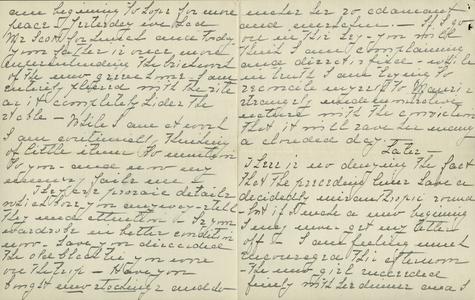 am beginning to hope for more
peace. Yesterday we had
Mr Scott for lunch and today
your father is once more
superintending the brickwork
of the new greenhouse - I am
entirely pleased with the site
as it completely hides the
stable -
While I am at work
I am continually thinking
of little items to mention
to you - and now my
memory fails me -
There are prosaic details
which bore you anyway - still
they need attention - Is your
wardrobe in better condition
now - Have you discarded
the old black tie you wore
on the trip - Have you
bought new stockings and do
under her so adamant
and merciful. - If I go
on in this key - you will
think I am complaining
and dissatisfied - while
in truth I am trying to
reconcile myself to Marie's
strangely undemonstrative
nature with the conviction
that it will save me many
a clouded day -
Later -
There is no denying the fact
that the preceding lines have a
decidedly misanthropic sound
- but if I make a new beginning
I may never get my letter
off - I am feeling much
encouraged this afternoon
- the new girl succeeded
finely with her dinner and